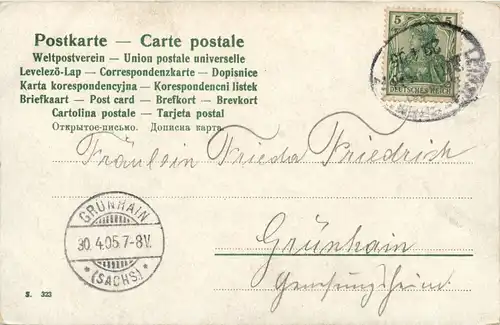 Postkarte — Carte postale
Weltpostverein — Union postale universelle
Levelező-Lap — Correspondenzkarte — Dopisnice
Karta korespondencyjna — Korespondencni listek
Briefkaart — Post card — Brefkort — Brevkort
Cartolina postale — Tarjeta postal
Открытое-письмо. Дописна карта
5 5
DEUTSCHES REICH
Fräulein Frieda Friedrich
Grünhain
Genesungsheim.
GRÜNHAIN
30.4.05.7-8V.
* (SACHS) *
S. 323